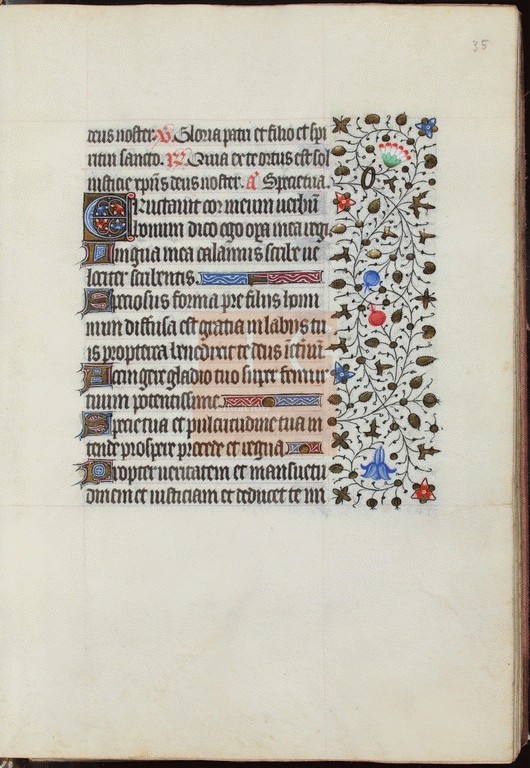 35
deus noster. V. Gloria patri et filio et spi
ritui sancto. R. Quia ex te ortus est sol
iusticie xpus deus noster. a Specie tua.
Eructauit cor meum uerbū
bonum dico ego opa mea regi.
Lingua mea calamus scribe ue
lociter scribentis.
Speciosus forma pre filiis homi
num diffusa est gratia in labiis tu
is propterea benedixit te deus ī eternū.
Accingere gladio tuo super femur
tuum potentissime.
Specie tua et pulcritudine tua in
tende prospere procede et regna
Propter ueritatem et mansuetu
dinem et iusticiam et deducet te mi